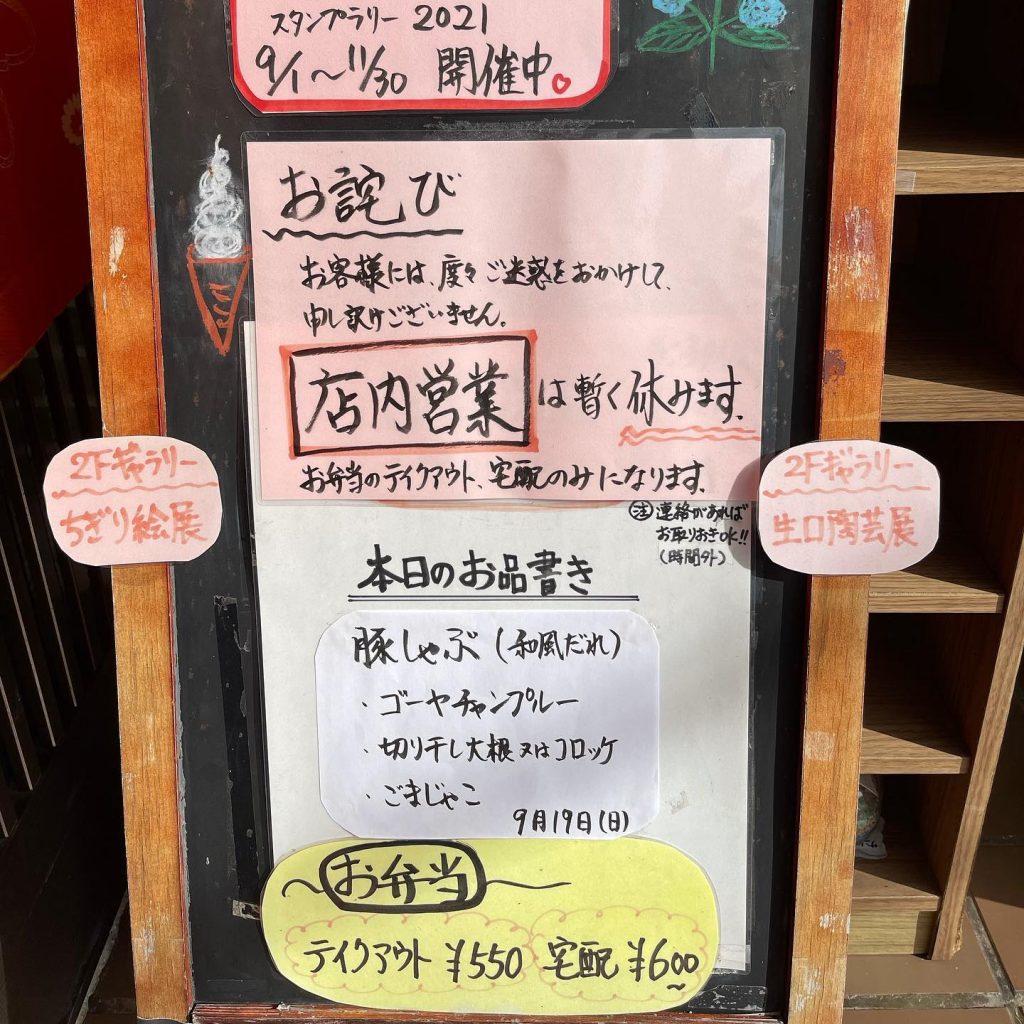 スタンプラリー 2021
9/1〜11/30 開催中
お詫び
お客様には、度々ご迷惑をおかけして、
申し訳けございません。
店内営業は暫く休みます。
お弁当のテイクアウト、宅配のみになります。
注 連絡があれば
お取りおきOK!!
(時間外)
2Fギャラリー
ちぎり絵展
2Fギャラリー
生口陶芸展
本日のお品書き
豚しゃぶ(和風だれ)
・ゴーヤチャンプルー
・切り干し大根又はコロッケ
・ごまじゃこ
9月19日(日)
〜お弁当〜
テイクアウト ¥550 宅配 ¥600